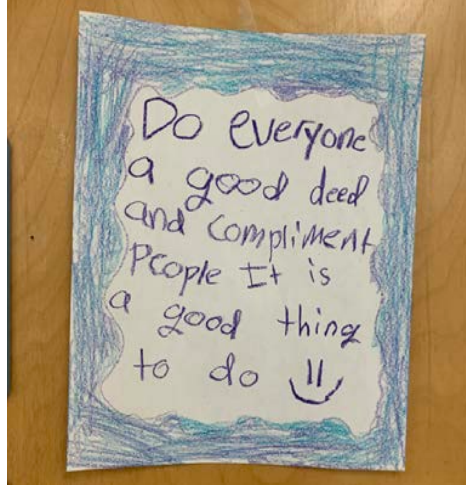 Do everyone
a good deed
and compliment
People It is
a good thing
to do